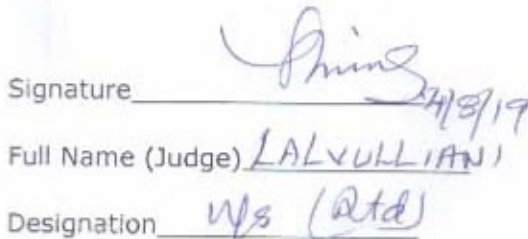 Signature 24/8/19
Full Name (Judge) LALVULLIANI
Designation (Rtd)